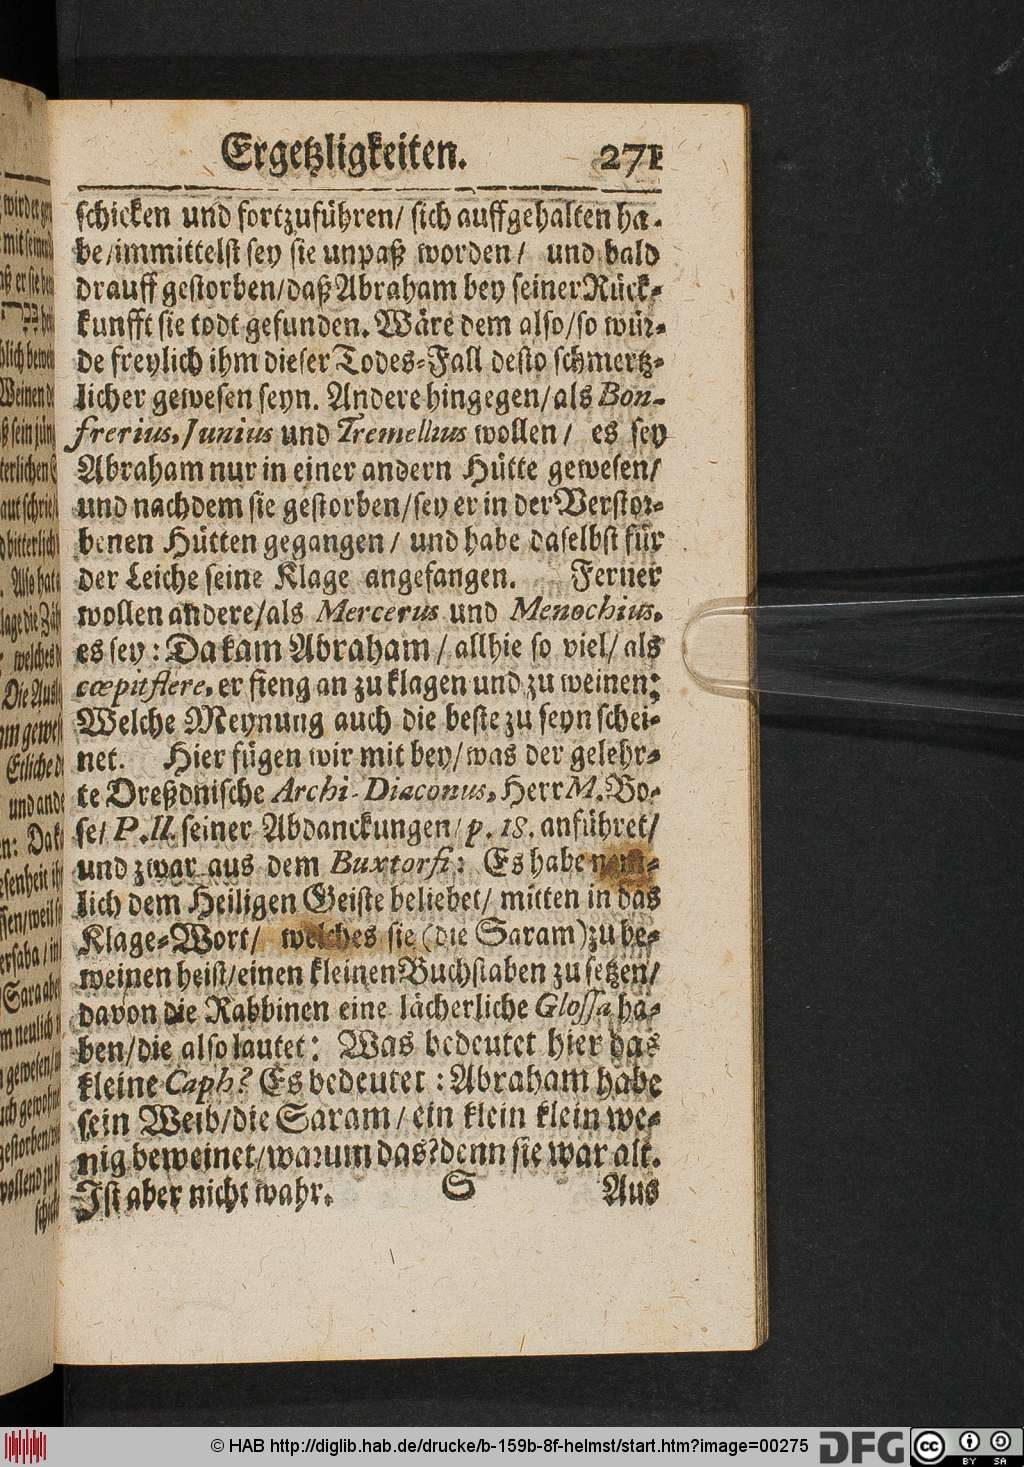 Ergetzligkeiten. 271
schicken und fortzuführen/ sich auffgehalten ha-
be/immittelst sey sie unpaß worden/ und bald
drauff gestorben/daß Abraham bey seiner Rück-
kunfft sie todt gefunden. Wäre dem also/so wür-
de freylich ihm dieser Todes-Fall desto schmertz-
licher gewesen seyn. Andere hingegen/als Bon-
frerius, Junius und Tremellius wollen/ es sey
Abraham nur in einer andern Hütte gewesen/
und nachdem sie gestorben/sey er in der Verstor-
benen Hütten gegangen/ und habe daselbst für
der Leiche seine Klage angefangen. Ferner
wollen andere/als Mercerus und Menochius,
es sey: Da kam Abraham/ allhie so viel/ als
cœpit flere, er fieng an zu klagen und zu weinen;
Welche Meynung auch die beste zu seyn schei-
net. Hier fügen wir mit bey/was der gelehr-
te Dreßdnische Archi-Diaconus, Herr M. Bo-
se/ P. II. seiner Abdanckungen/ p. 18. anführet/
und zwar aus dem Buxtorfi: Es habe nem-
lich dem Heiligen Geiste beliebet/ mitten in das
Klage-Wort/ welches sie (die Saram) zu be-
weinen heist/einen kleinen Buchstaben zu setzen/
davon die Rabbinen eine lächerliche Glossa ha-
ben/die also lautet: Was bedeutet hier das
kleine Caph? Es bedeutet: Abraham habe
sein Weib/die Saram/ ein klein klein we-
nig beweinet/warum das? denn sie war alt.
Ist aber nicht wahr. S Aus
wird er
mit seinem
aß er sie
Weinen
terlichen
aut schrie/
bitterlich
Also hat
lage die
welches
Die
Etliche
und
esenheit
ssen/weil
ersaba/
Sara aber
neulich
gewesen/
gestorben/
wollen
© HAB http://diglib.hab.de/drucke/b-159b-8f-helmst/start.htm?image=00275 DFG cc BY SA